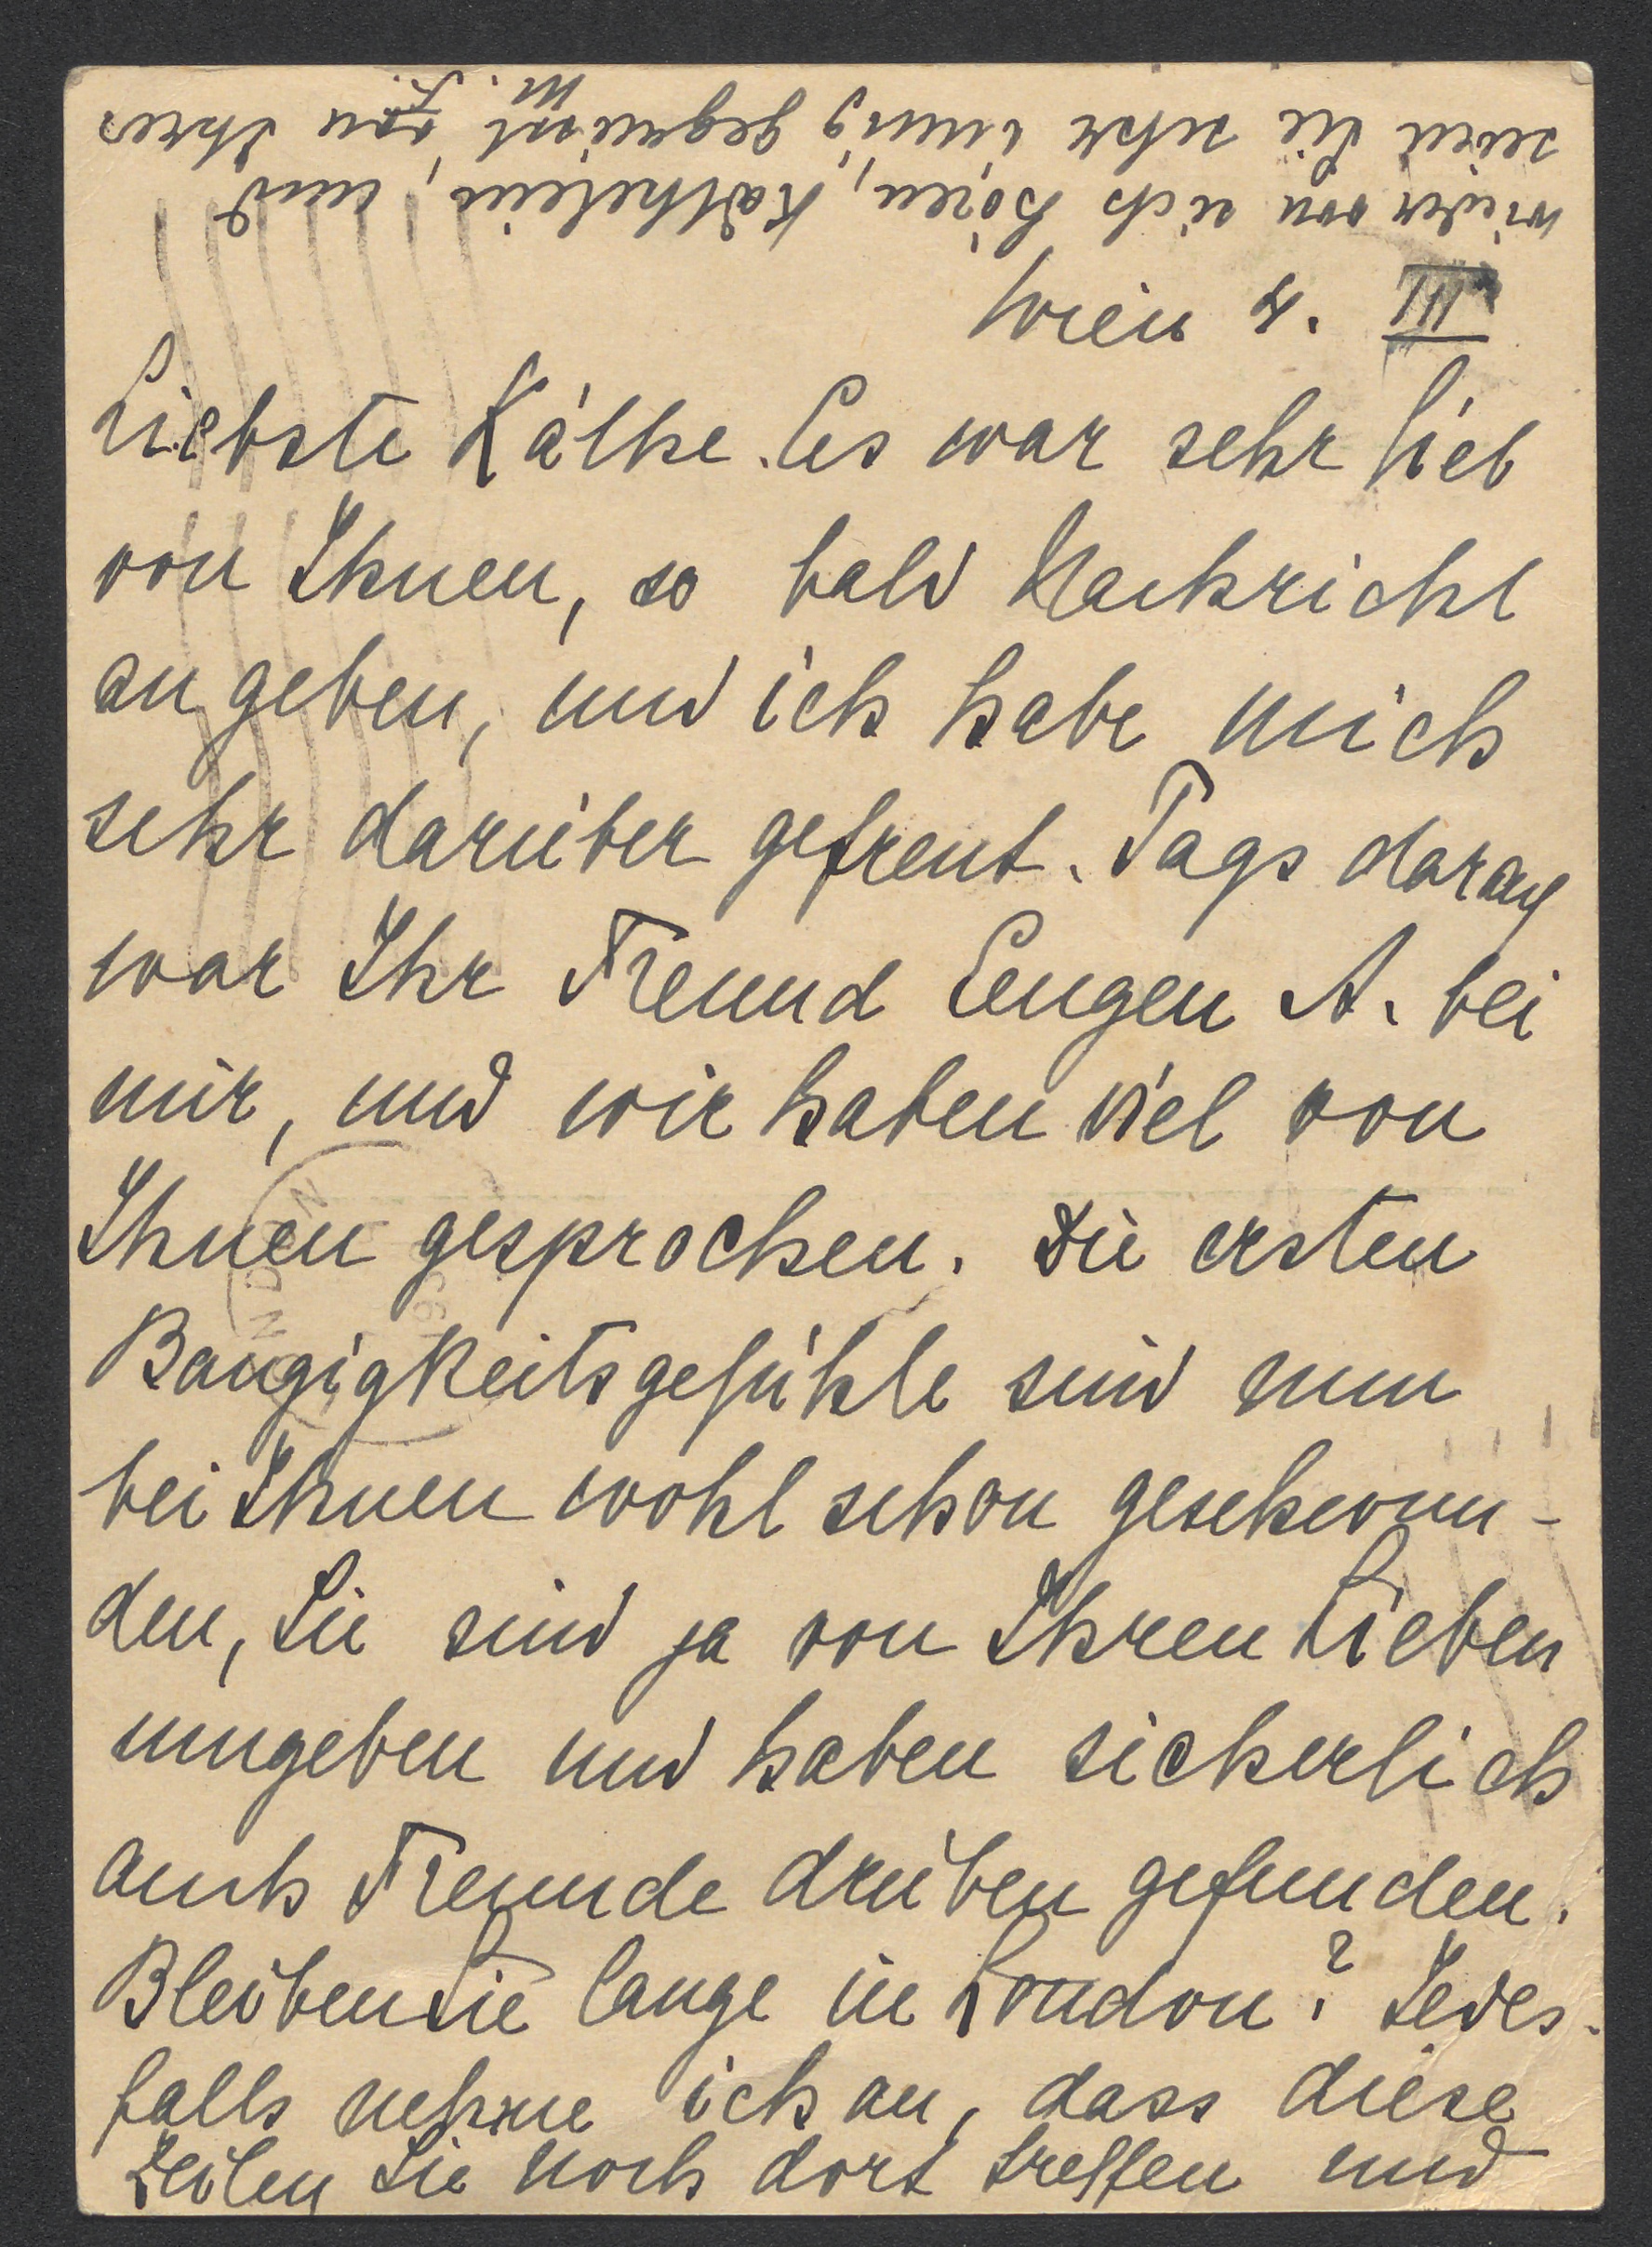 Wien 4. III
Liebste Käthe. Es war sehr lieb
von Ihnen, so bald Nachricht
zu geben, und ich habe mich
sehr darüber gefreut. Tags darauf
war Ihr Freund Eugen A. bei
mir, und wir haben viel von
Ihnen gesprochen. Die ersten
Bangigkeitsgefühle sind nun
bei Ihnen wohl schon geschwun-
den, Sie sind ja von Ihren Lieben
umgeben und haben sicherlich
auch Freunde drüben gefunden.
Bleiben Sie lange in London? Jedes-
falls nehme ich an, dass diese
Zeilen Sie noch dort treffen und
wieder von sich hören, Käthelein, und
seien Sie sehr innig gegrüsst von Ihrer
M. J.